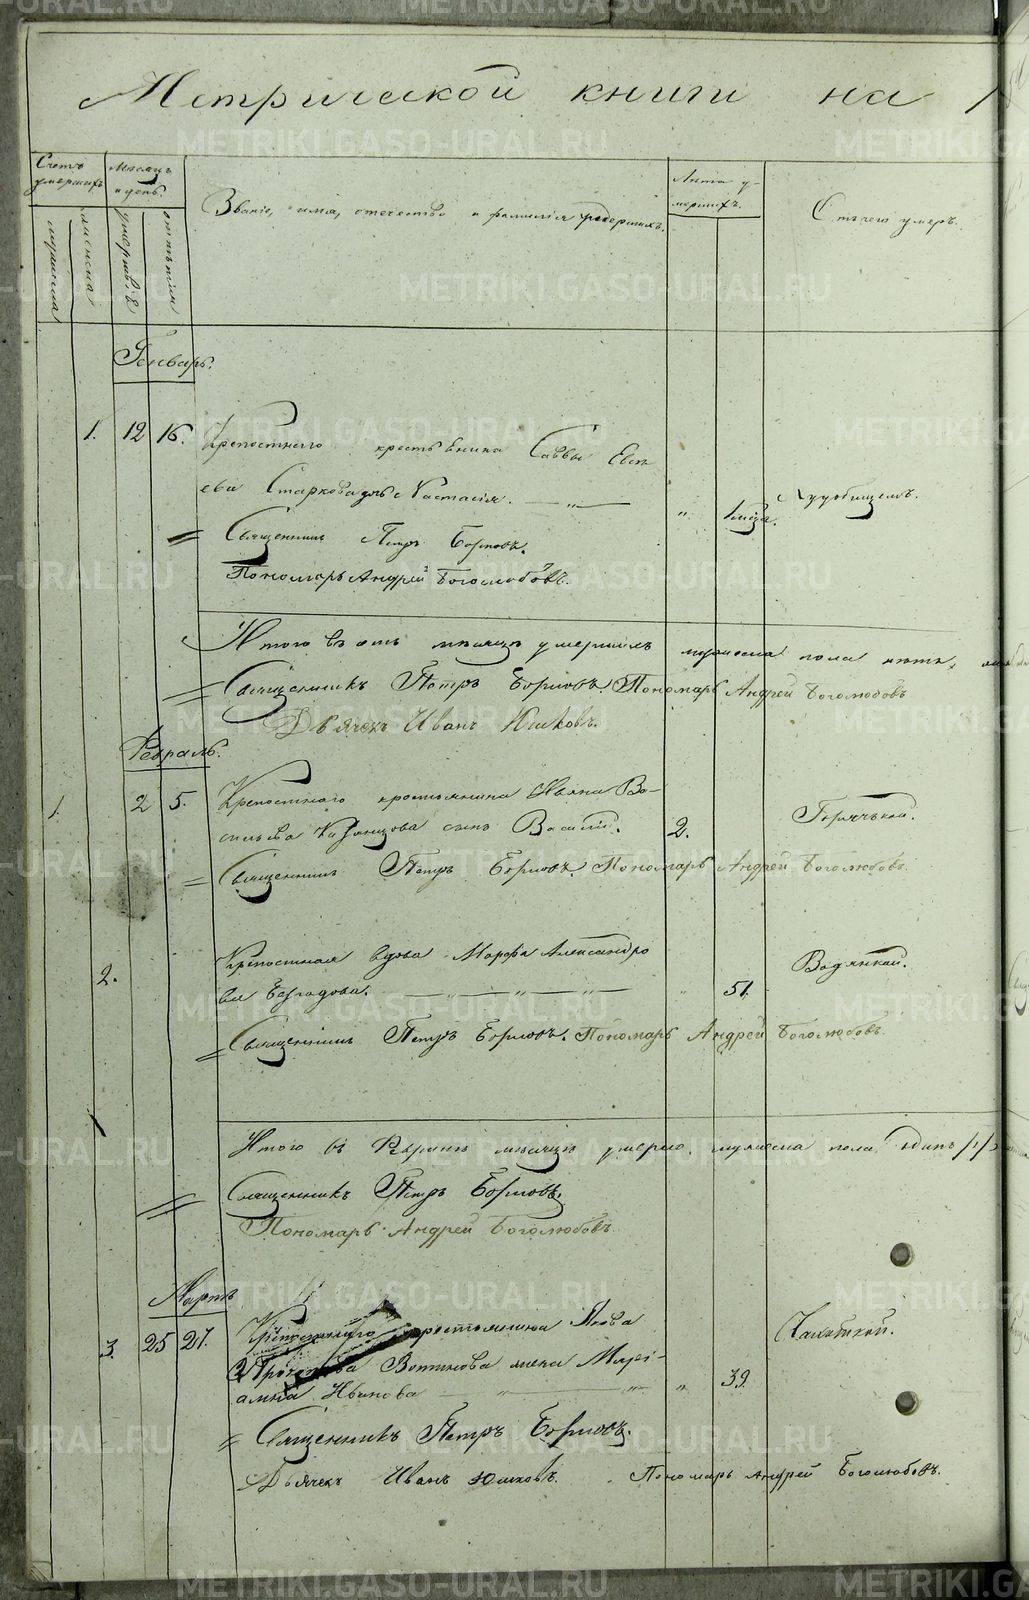 Метрической книги на
Счетъ умершихъ
Мѣсяцъ и день.
Званіе, имя, отечество и фамилія умершихъ.
Лѣта умершихъ.
Отъ чего умеръ.
мужеска
женска
смерти
Генварь.
1. 12 16. Крепостнаго крестьенина Саввы Евсѣ
ева Старкова дочь Настасія.
1 мѣся.
Худобищемъ.
Священникъ Петръ Борисовъ.
Пономарь Андрей Боголюбовъ.
Итого въ мѣсяцѣ умершихъ мужеска пола нѣтъ,
Священникъ Петръ Борисовъ. Пономарь Андрей Боголюбовъ
Дьячекъ Иванъ Юшковъ.
Февраль.
1. 2 5. Крепостнаго крестьянина Ивана Ва-
сильева Казанцова сынъ Василій. 2. Горячькой.
Священникъ Петръ Борисовъ. Пономарь Андрей Боголюбовъ
2. Крепостная вдова Марфа Александро
ва 51. Водянкой.
Священникъ Петръ Борисовъ. Пономарь Андрей Боголюбовъ
Итого въ Февралѣ мѣсяцѣ умерло мужеска пола одинъ /1/
Священникъ Петръ Борисовъ.
Пономарь Андрей Боголюбовъ
Мартъ
3. 25 27. Крепостнаго крестьянина Якова
Вотинова жена Марі-
амна Иванова 39. Чахоткой.
Священникъ Петръ Борисовъ.
Дьячекъ Иванъ Юшковъ. Пономарь Андрей Боголюбовъ.
METRIKI.GASO-URAL.RU